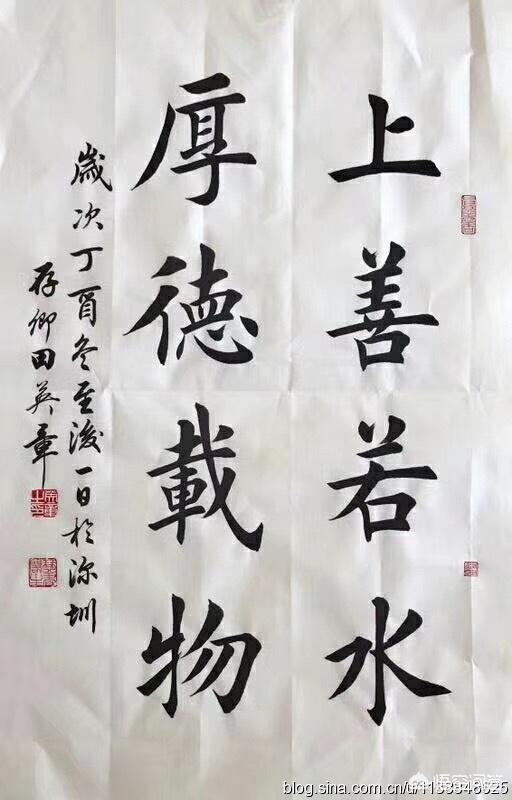 上善若水
厚德載物
歲次丁酉冬至後一日於深圳
存卿田英章
悟空问答
blog.sina.com.cn/u/1133948325